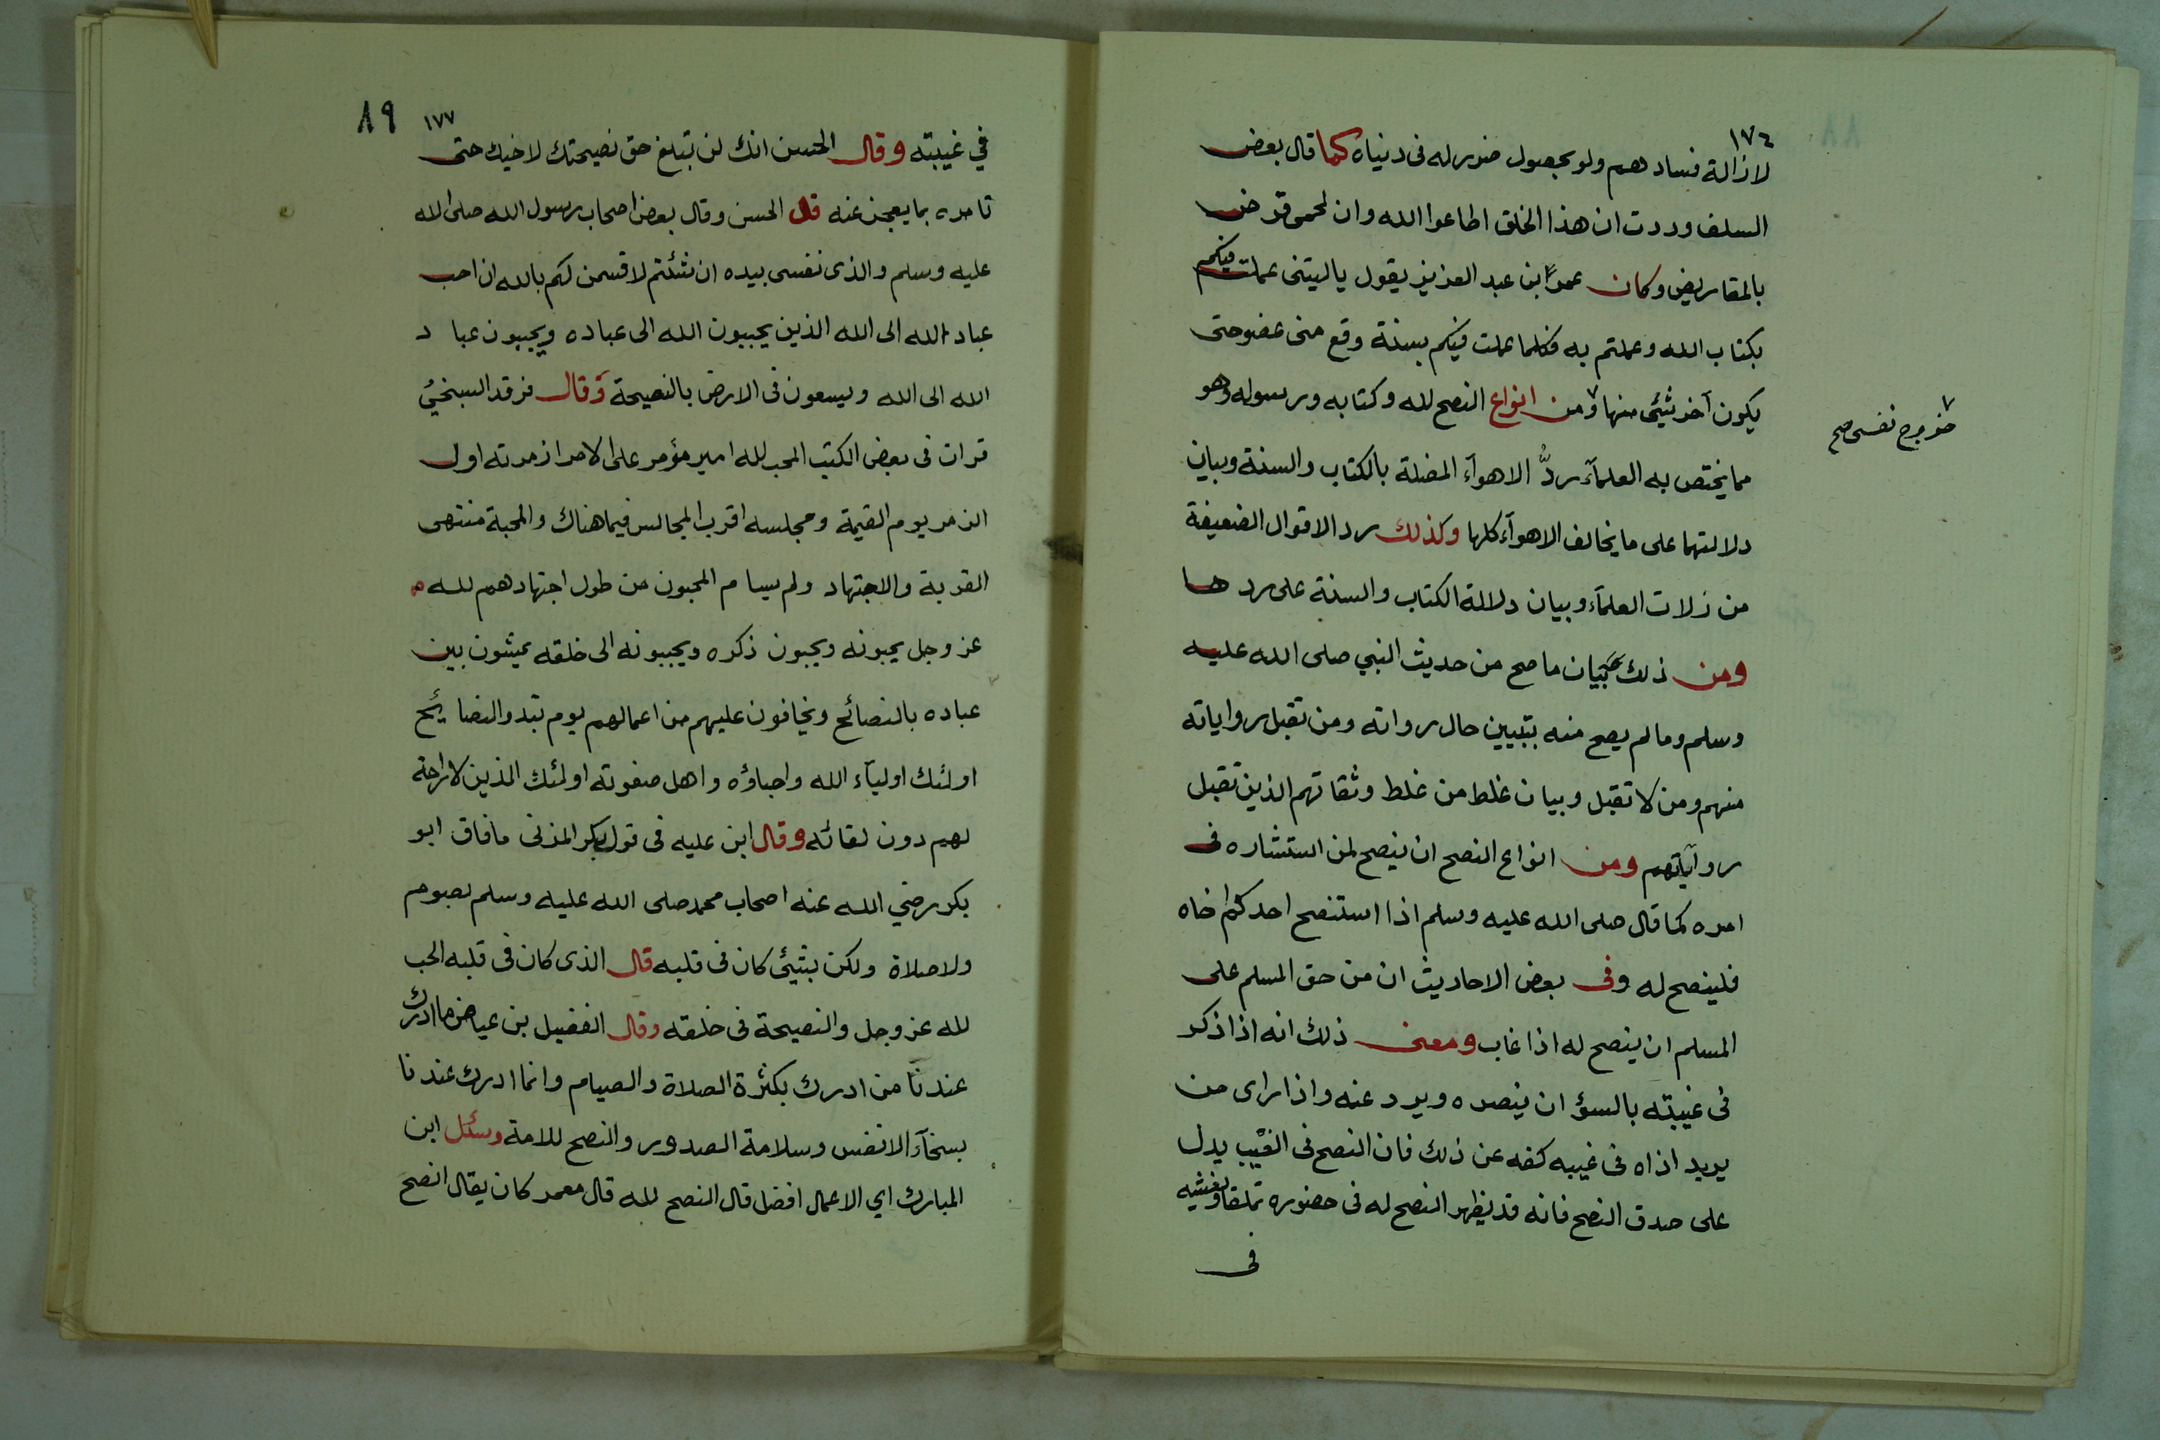 ١٧٤
لازالة فسادهم ولو بحصول ضرر له فى دنياه كما قال بعض
السلف وددت ان هذا الخلق اطاعوا الله وان لحمى قرض
بالمقاريض وكان عمر ابن عبد العزيز يقول ياليتنى عملت فيكم
بكتاب الله وعملتم به فكلما عملت فيكم بسنة وقع منى عضو حتى
يكون آخر شئ منها ٧ ومن انواع النصح لله وكتابه ورسوله وهو
مما يختص به العلمآء ردُّ الاهوآء المضلة بالكتاب والسنة وبيان
دلالتهما على ما يخالف الاهوآء كلها وكذلك رد الاقوال الضعيفة
من زلات العلمآء وبيان دلالة الكتاب والسنة على ردها
ومن ذلك بيان ما صح من حديث النبي صلى الله عليه
وسلم وما لم يصح منه بتبيين حال رواته ومن تقبل رواياته
منهم ومن لا تقبل وبيان غلط من غلط وثقاتهم الذين تقبل
روآيتهم ومن انواع النصح ان ينصح لمن استشاره فى
امره كما قال صلى الله عليه وسلم اذا استنصح احدكم اخاه
فلينصح له وفى بعض الاحاديث ان من حق المسلم على
المسلم ان ينصح له اذا غاب ومعنى ذلك انه اذا ذكر
فى غيبته بالسؤ ان ينصره ويرد عنه واذا راى من
يريد اذاه فى غيبه كفه عن ذلك فان النصح فى الغيب يدل
على صدق النصح فانه قد يظهر النصح له فى حضوره تملقا ويغشيه
فى
٧ خروج نفسى صح
٨٩
١٧٧
في غيبته وقال الحسن انك لن تبلغ حق نصيحتك لاخيك حتى
تامره بما يعجز عنه قال الحسن وقال بعض اصحاب رسول الله صلى الله
عليه وسلم والذى نفسى بيده ان شئتم لاقسمن لكم بالله ان احب
عباد الله الى الله الذين يحببون الله الى عباده ويحببون عباد
الله الى الله ويسعون فى الارض بالنصيحة وقال فرقد السبخيُ
قرات فى بعض الكتب المحب لله امير مؤمر على الامرا زمرته اول
الزمر يوم القيمة ومجلسه اقرب المجالس فيما هناك والمحبة منتهى
القربة والاجتهاد ولم يسام المحبون من طول اجتهادهم لله
عز وجل يحبونه ويحبون ذكره ويحببونه الى خلقه يمشون بين
عباده بالنصائح ويخافون عليهم من اعمالهم يوم تبدو النصائح
اولئك اوليآء الله واحباؤه واهل صفوته اولئك الذين لا راحة
لهم دون لقائه وقال ابن عليه فى قول بكر المزنى ما فاق ابو
بكر رضي الله عنه اصحاب محمد صلى الله عليه وسلم بصوم
ولا صلاة ولكن بشيئ كان فى قلبه قال الذى كان فى قلبه الحب
لله عز وجل والنصيحة فى خلقه وقال الفضيل بن عياض ما ادرك
عندنا من ادرك بكثرة الصلاة والصيام وانما ادرك عندنا
بسخآء الانفس وسلامة الصدور والنصح للامة وسئل ابن
المبارك اي الاعمال افضل قال النصح لله قال معمر كان يقال انصح